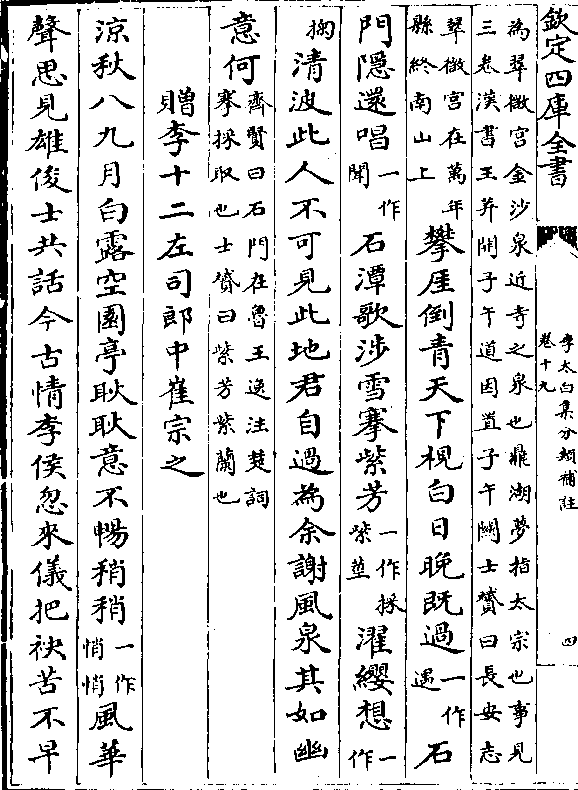 欽定四庫全書
李太白集分類補註
卷十九
四
為翠微宮金沙泉近奇之泉也鼎湖夢指太宗也事見
三卷漢書王莽開子午道因置子午關士贇曰長安志
翠微宮在萬年
縣終南山上
攀厓倒青天下視白日晚既過一作
遇石
門隱還唱一作
聞石潭歌涉雪搴紫芳一作採
紫莖濯纓想一
作
掬清波此人不可見此地君自過為余謝風泉其如幽
意何齊賢曰石門在魯王逸注楚詞
搴採取也士贇曰紫芳紫蘭也
贈李十二左司郎中崔宗之
涼秋八九月白露空園亭耿耿意不暢稍稍一作
悄悄風華
聲思見雄俊士共話今古情李侯忽來儀把袂苦不早